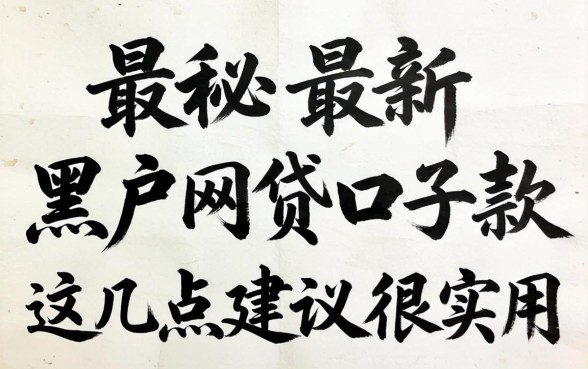 最秘 最新
黑户网贷口子款
这几点建议很实用